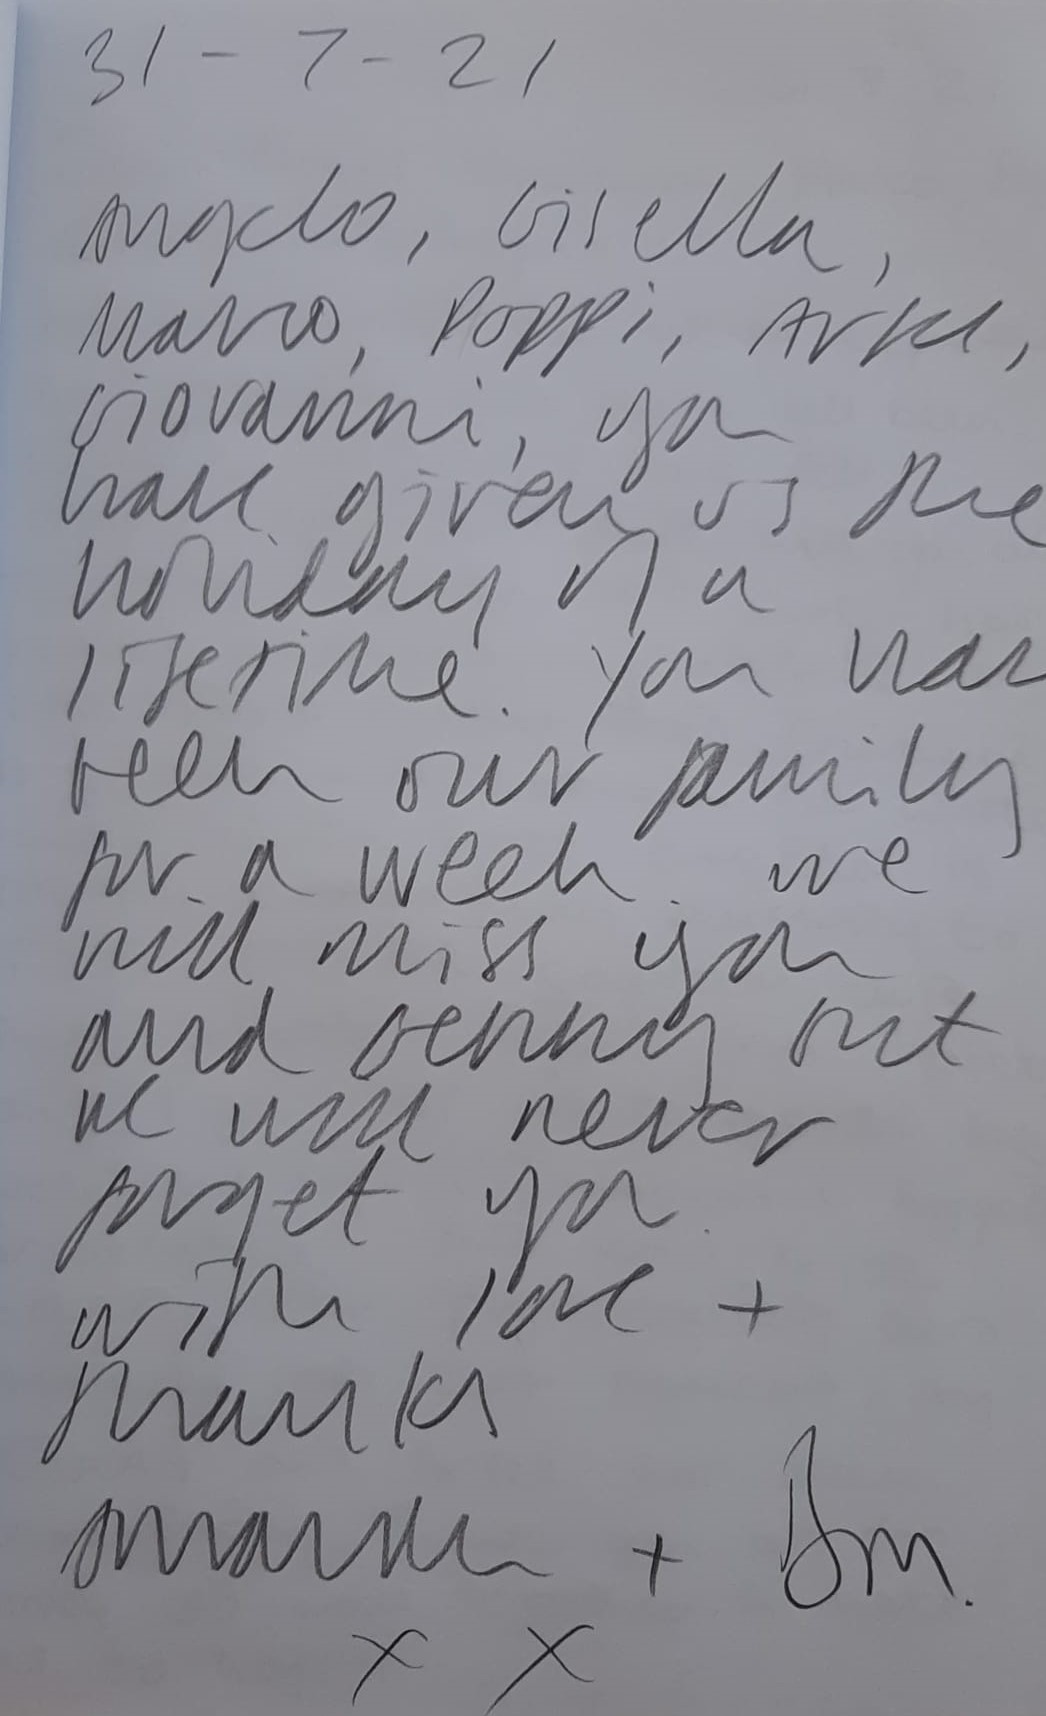 31-7-21
Angelo, Gisella,
Marco, Poppi,
Giovanni, you
have given us the
holiday of a
lifetime. You have
been our family
for a week. We
will miss you
and Benny but
we will never
forget you.
With love +
thanks
+
x x